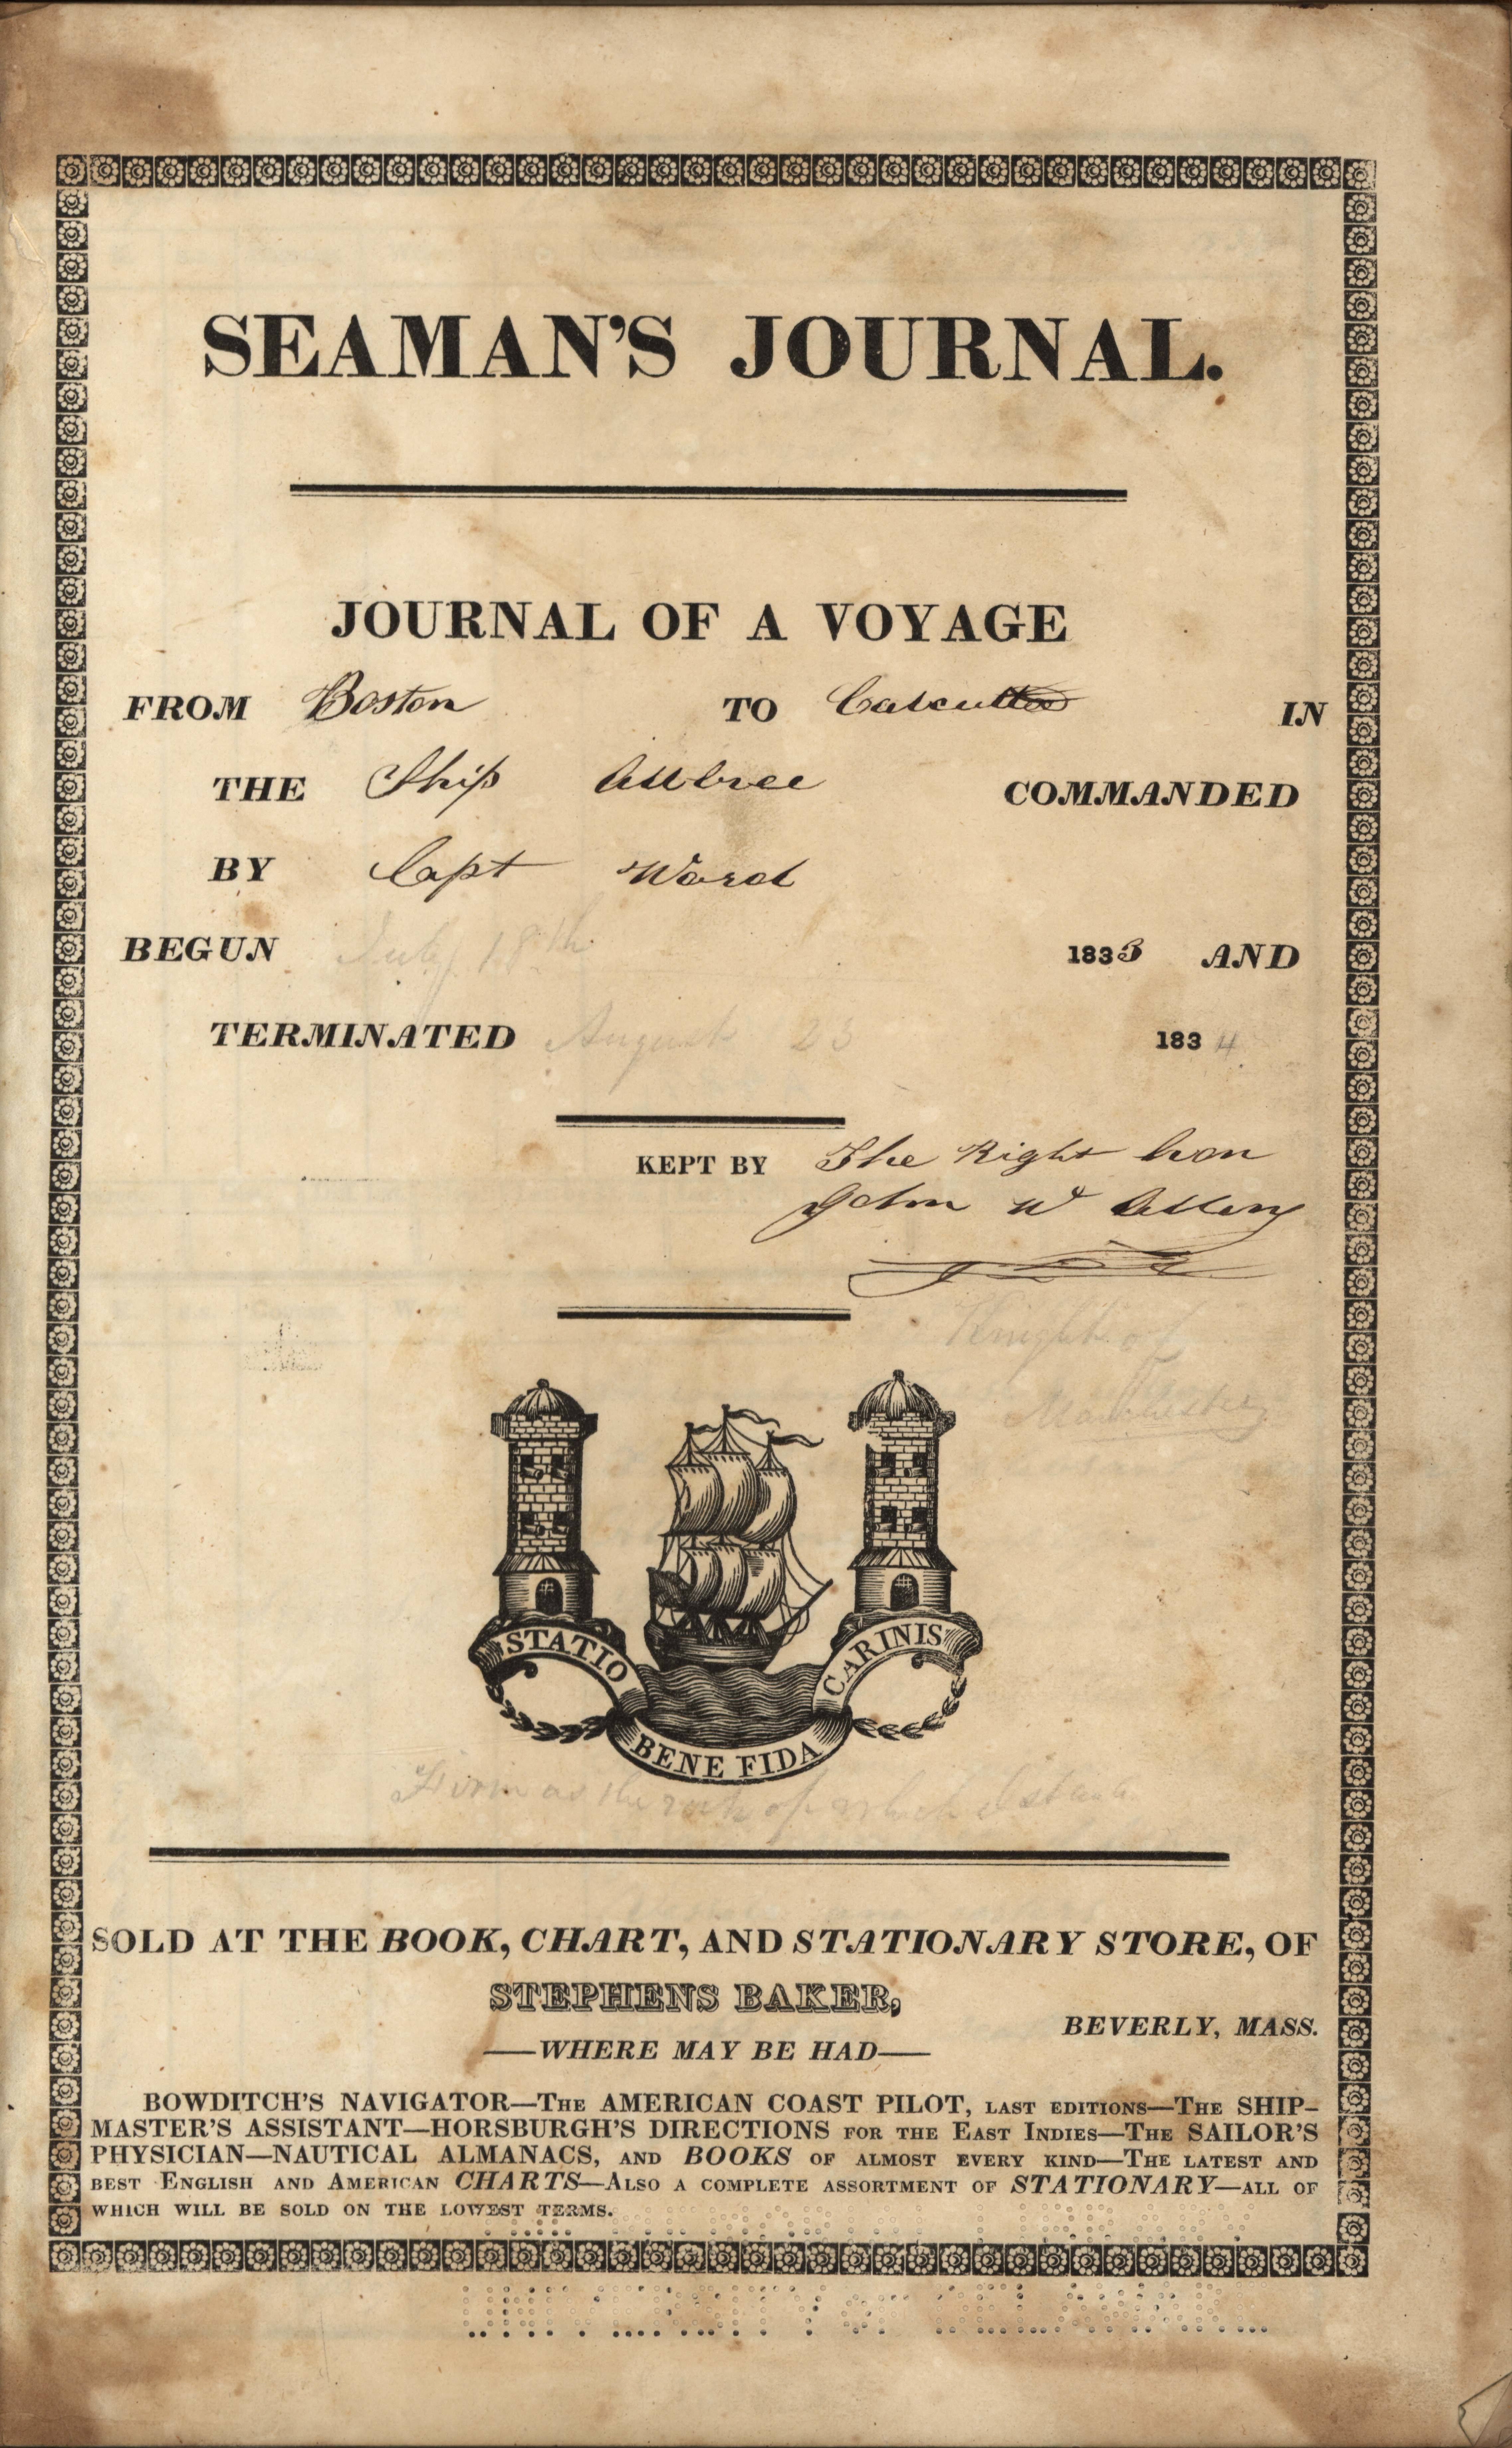 SEAMAN'S JOURNAL.
JOURNAL OF A VOYAGE
FROM Boston TO Calcutta IN
THE Ship Allbree COMMANDED
BY Capt Ward
BEGUN July 18th 1833 AND
TERMINATED August 23 1834
KEPT BY The Right hon
John W Allen
Knight of
Manchester
STATIO
BENE FIDA
CARINIS
Firm as the rock of which I stand
SOLD AT THE BOOK, CHART, AND STATIONARY STORE, OF
STEPHENS BAKER,
BEVERLY, MASS.
—WHERE MAY BE HAD—
BOWDITCH'S NAVIGATOR—THE AMERICAN COAST PILOT, LAST EDITIONS—THE SHIP-
MASTER'S ASSISTANT—HORSBURGH'S DIRECTIONS FOR THE EAST INDIES—THE SAILOR'S
PHYSICIAN—NAUTICAL ALMANACS, AND BOOKS OF ALMOST EVERY KIND—THE LATEST AND
BEST ENGLISH AND AMERICAN CHARTS—ALSO A COMPLETE ASSORTMENT OF STATIONARY—ALL OF
WHICH WILL BE SOLD ON THE LOWEST TERMS.